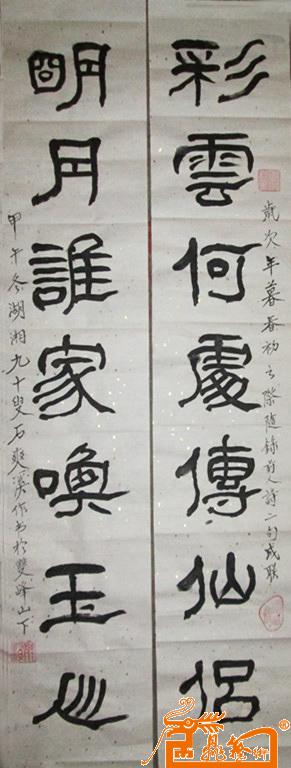 彩雲何處傳仙侶
歲次年暮春初之際隨錄前人詩二句成联
明月誰家喚玉
甲午冬湖湘九十叟石爽溪作書於雙峰山下